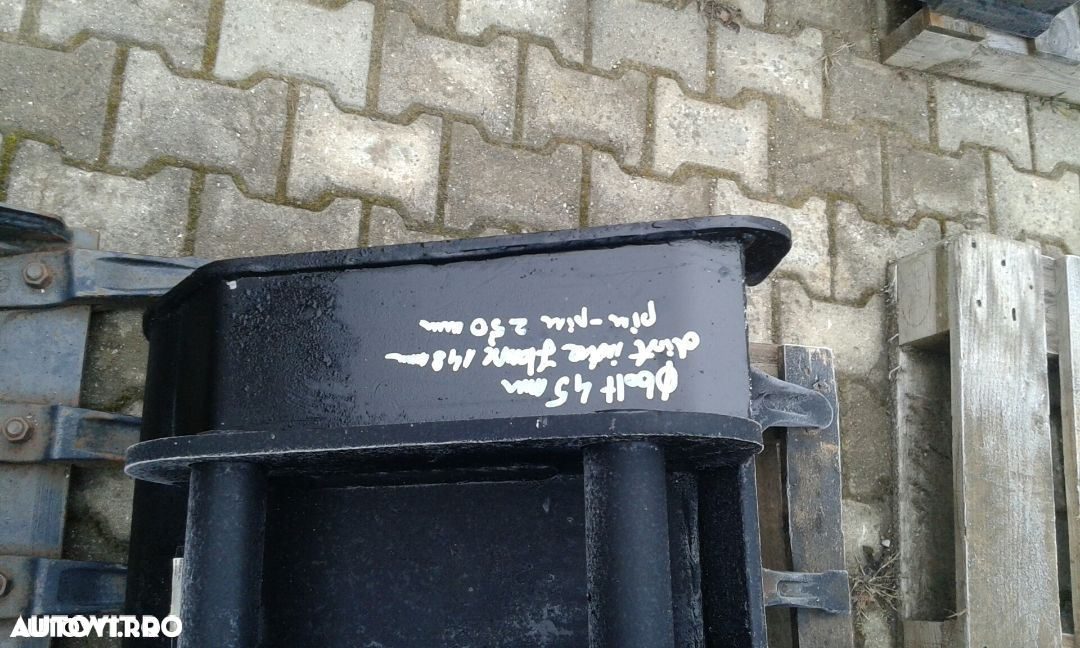 Øbolt 45 mm
dist intre flanse 148 mm
pin-pin 250 mm
AUTOVIT.RO